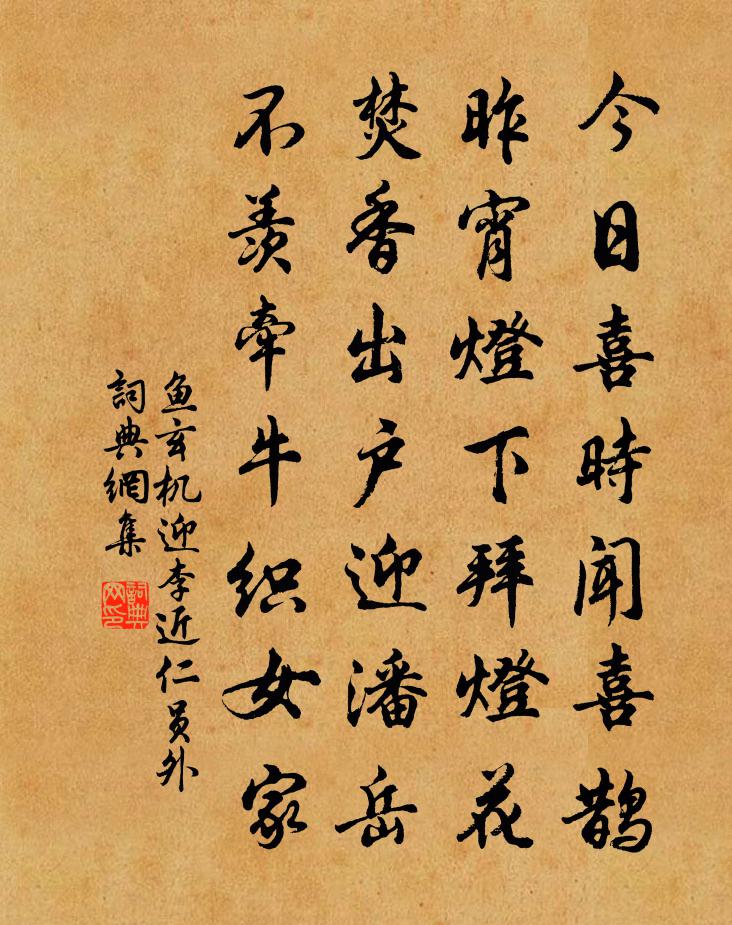 今日喜時聞喜鵲
昨宵燈下拜燈花
焚香出户迎潘岳
不羨牽牛织女家
鱼玄机迎李近仁员外
詞典網集
詞典网印